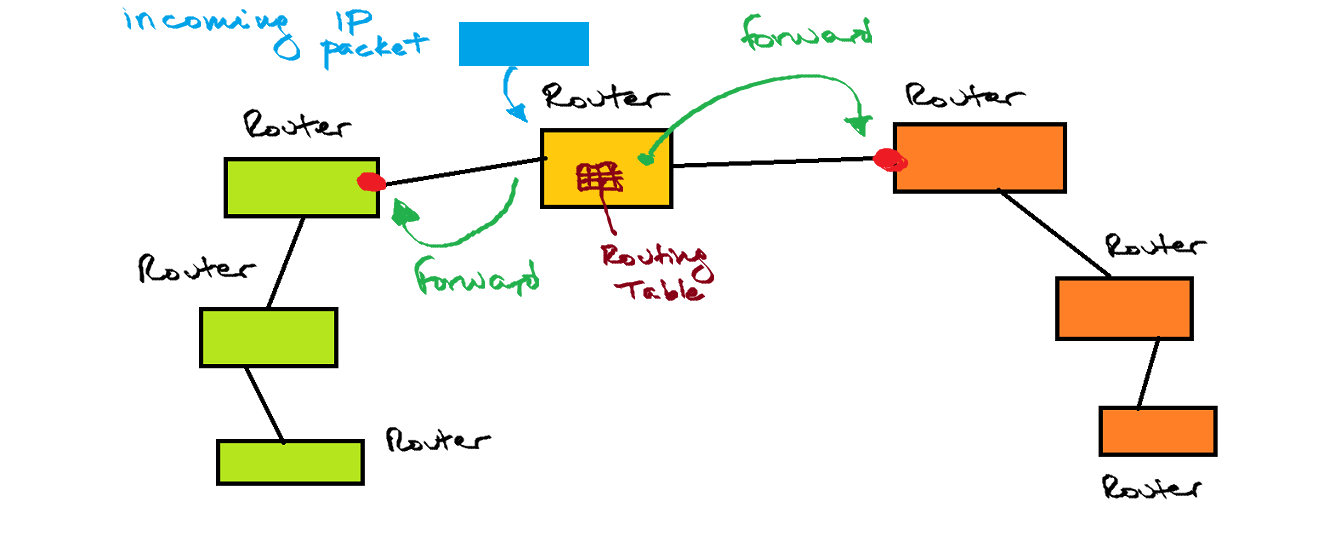 incoming IP
packet
forward
Router
Router
Router
Router
forward
Routing
Table
Router
Router
Router